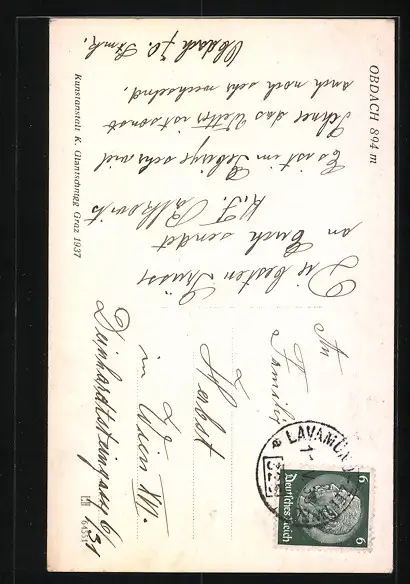 OBDACH 894 m
Obdach
Die besten Grüsse
an Euch sendet
K. F.
Es ist im Gebirge sehr viel
Schnee das Wetter ist sonst
auch noch sehr wechselnd.
Kunstanstalt K. Glantschnigg Graz 1937
An
Familie
Herbst
in Wien XVI.
6
31
64551
LAVAMÜND
Deutsches Reich
6
6